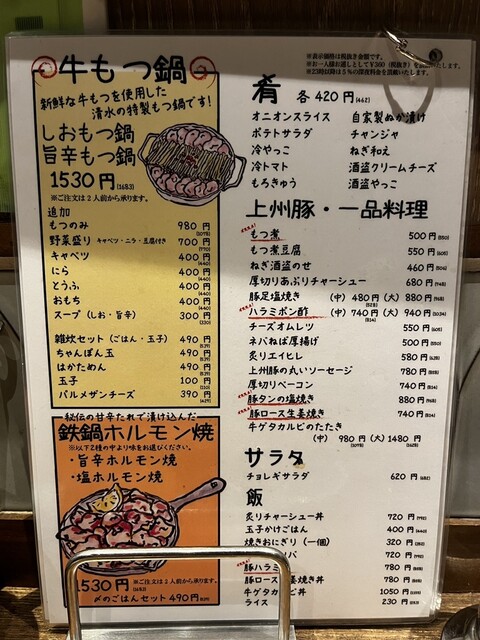 ※表示価格は税抜き金額です。
※お一人様お通しとして¥380(税抜き)
※23時以降は5%の深夜料金を頂戴いたします。
牛もつ鍋
新鮮な牛もつを使用した
清水の特製もつ鍋です!
しおもつ鍋
旨辛もつ鍋
1530円(1683)
※ご注文は2人前から承ります。
追加
もつのみ 980円(1078)
野菜盛り キャベツ・ニラ・豆腐付き 700円(770)
キャベツ 400円(440)
にら 400円(440)
とうふ 400円(440)
おもち 400円(440)
スープ(しお・旨辛) 300円(330)
雑炊セット(ごはん・玉子) 490円(539)
ちゃんぽん玉 490円(539)
はかためん 490円(539)
玉子 100円(110)
パルメザンチーズ 390円(429)
秘伝の甘辛たれで漬け込んだ
鉄鍋ホルモン焼
※以下2種の中より味をお選びください。
・旨辛ホルモン焼
・塩ホルモン焼
1530円 ※ご注文は2人前から承ります。(1683)
〆のごはんセット490円(539)
肴 各420円(462)
オニオンスライス 自家製ぬか漬け
ポテトサラダ チャンジャ
冷やっこ ねぎ和え
冷トマト 酒盗クリームチーズ
もろきゅう 酒盗やっこ
上州豚・一品料理
もつ煮 500円(550)
もつ煮豆腐 550円(605)
ねぎ酒盗のせ 460円(506)
厚切りあぶりチャーシュー 680円(748)
豚足塩焼き (中)480円(528)(大)880円(968)
ハラミポン酢 (中)740円(814)(大)940円(1034)
チーズオムレツ 550円(605)
ネバねば厚揚げ 500円(550)
炙りエイヒレ 580円(638)
上州豚の丸いソーセージ 780円(858)
厚切りベーコン 740円(814)
豚タンの塩焼き 880円(968)
豚ロース生姜焼き 740円(814)
牛ゲタカルビのたたき
(中)980円(1078)(大)1480円(1628)
サラダ
チョレギサラダ 620円(682)
飯
炙りチャーシュー丼 720円(792)
玉子かけごはん 400円(440)
焼きおにぎり(一個) 320円(352)
パ 720円(792)
豚ハラミ 780円(858)
豚ロース 姜焼き丼 780円(858)
牛ゲタカ ビ丼 1050円(1155)
ライス 230円(253)